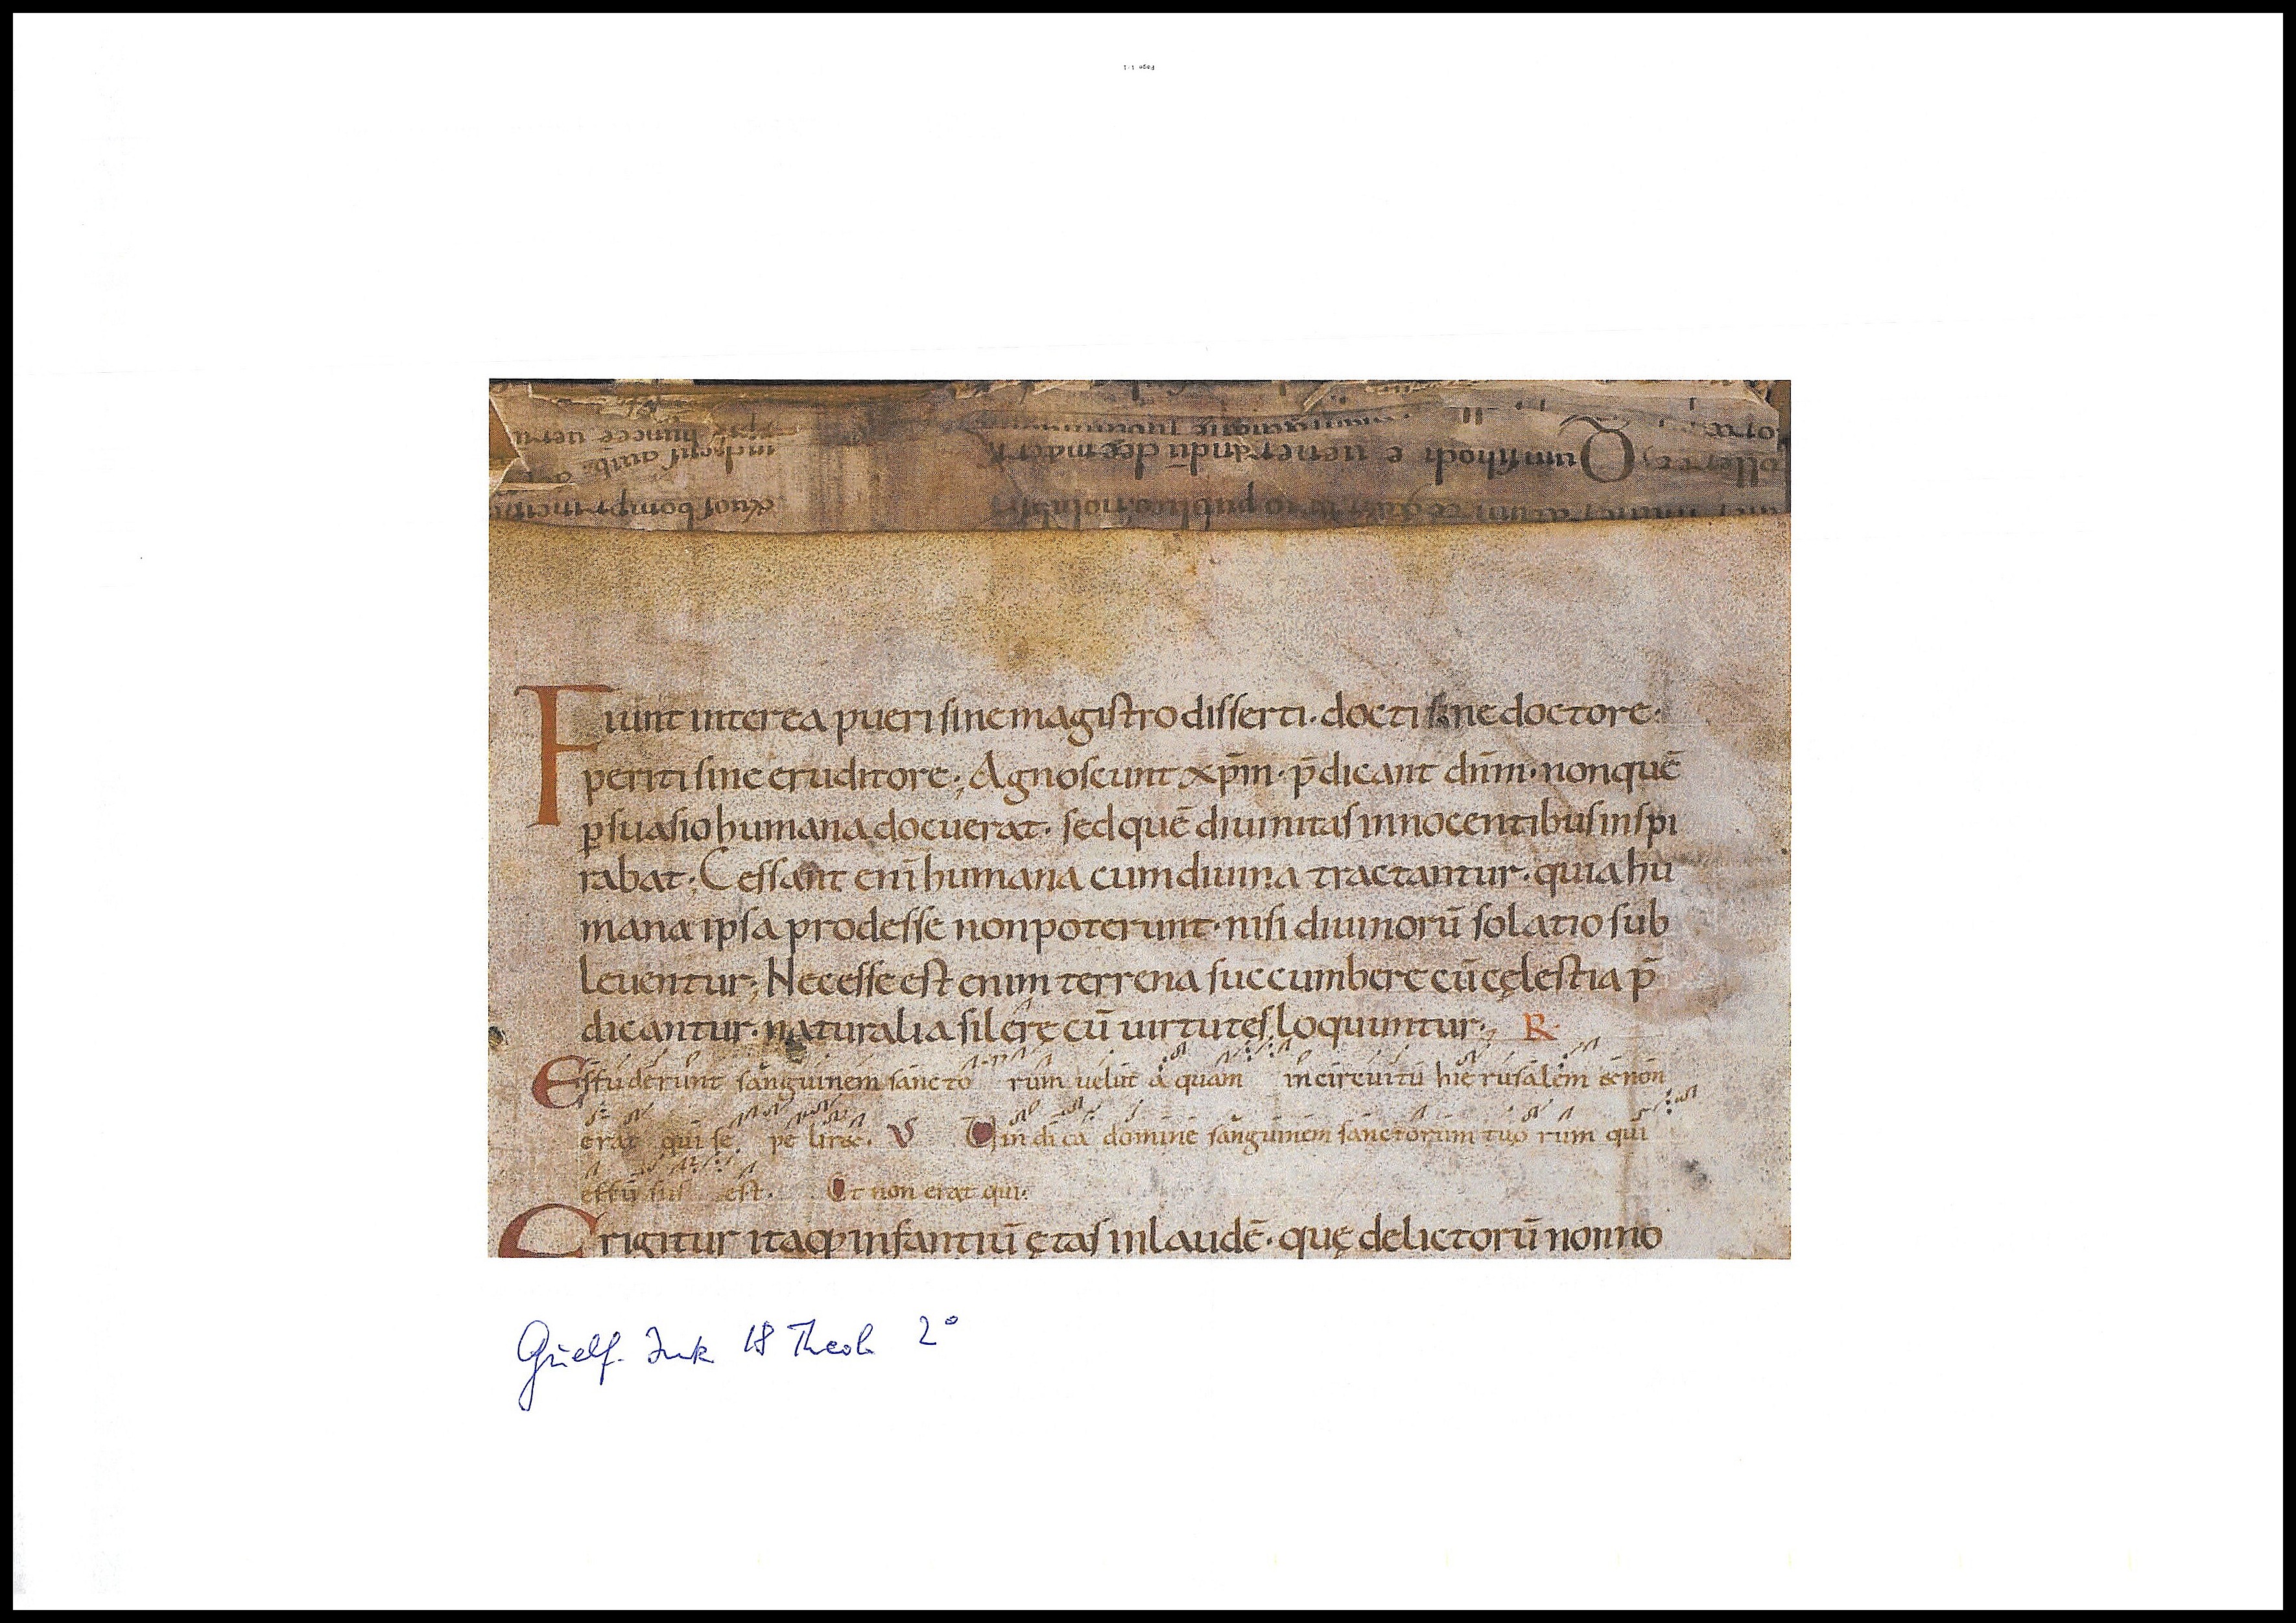 Page 1-1
Fiunt interea pueri sine magistro disserti· docti sine doctore·
periti sine eruditore; Agnoscunt xp̄m· p̄dicant dn̄m· non quē
ꝑsuasio humana docuerat· sed quē diuinitas innocentibus inspi
rabat· Cessant eni̅ humana cum diuina tractantur· quia hu
mana ipsa prodesse non poterunt· nisi diuinorū solatio sub
leuentur; Necesse est enim terrena succumbere cū cęlestia p̄
dicantur· naturalia silere cū uirtutes loquuntur; R
Effuderunt sanguinem sanctorum uelut aquam in circuitu hierusalem et non
erat qui sepeliret. V Vindica domine sanguinem sanctorum tuorum qui
effusus est. Et non erat qui·
Erigitur itaq; infantiū ętas in laudē· quę delictorū non no
Guelf. Ink 18 Theol 2°